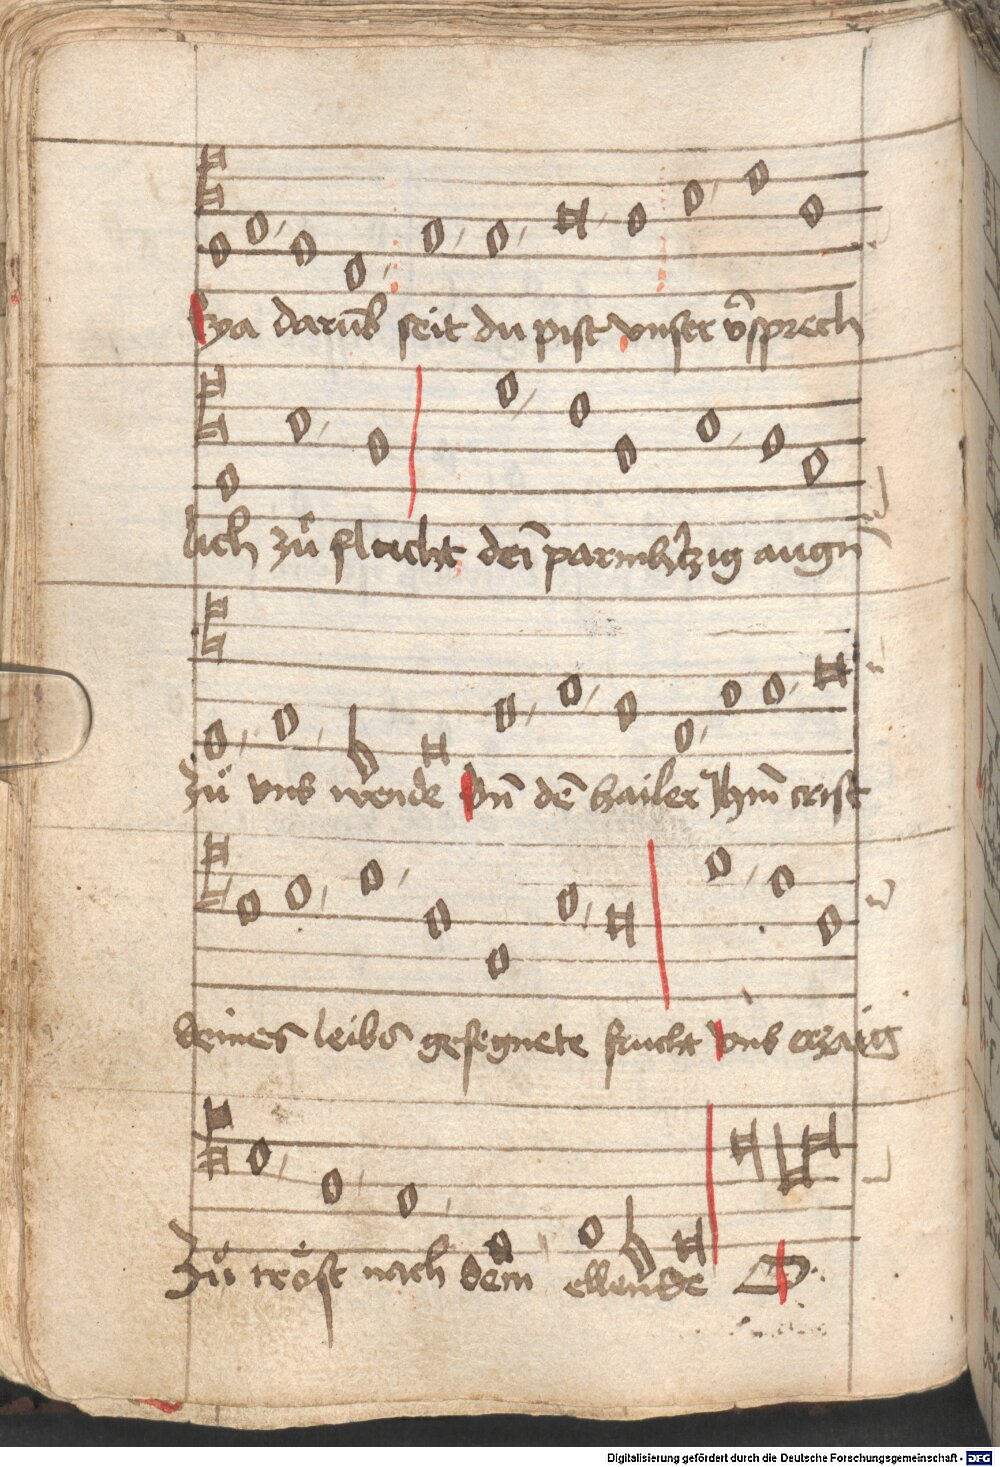 Eya darūb seit du pist vnser v̄sprech
lich zů flucht deī parmh'tzig augn̄
zů vns wende Vn̄ dē hailer Jhm̄ crist
deines leibs gesegnete frucht vns erzaig
Zů trost nach dem ellende O
Digitalisierung gefördert durch die Deutsche Forschungsgemeinschaft - DFG